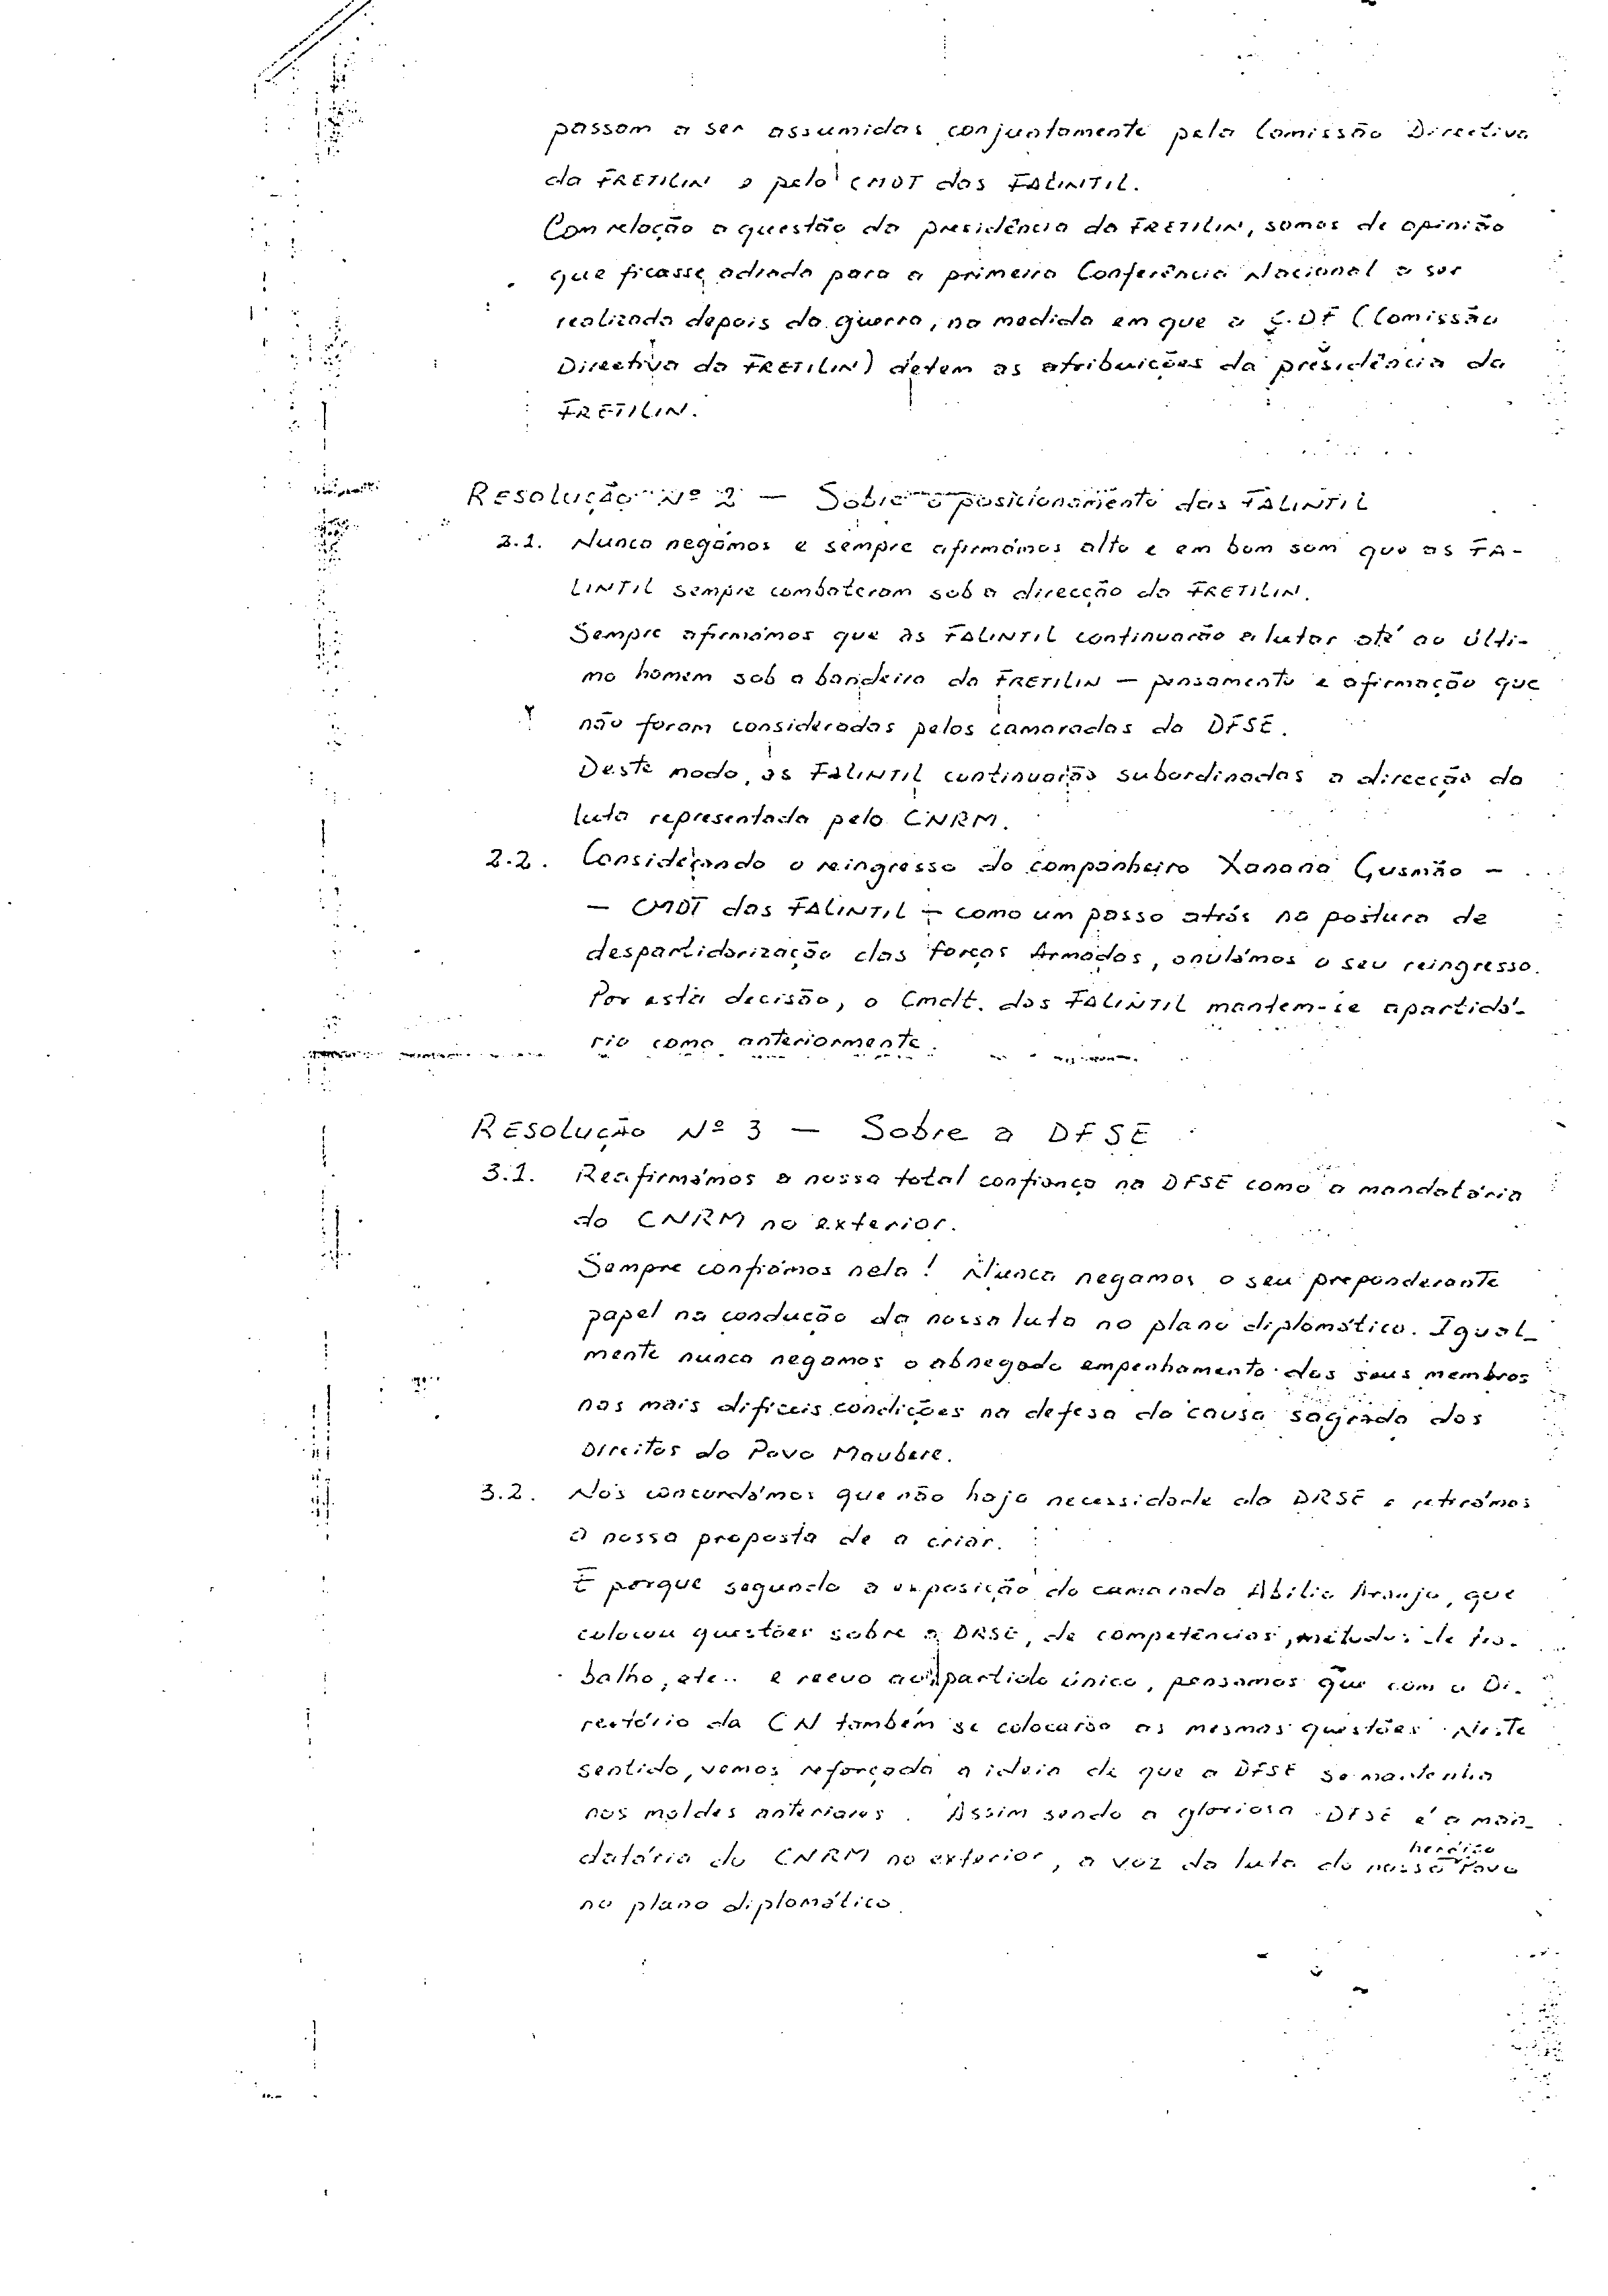 passam a ser assumidas conjuntamente pela Comissão Directiva
da FRETILIN e pelo CMDT das FALINTIL.
Com relação a questão da presidência da FRETILIN, somos de opinião
que ficasse adiada para a primeira Conferência Nacional a ser
realizada depois da guerra, na medida em que a C.DF (Comissão
Directiva da FRETILIN) detem as atribuições da presidência da
FRETILIN.
Resolução Nº 2 — Sobre o posicionamento das FALINTIL
2.1. Nunca negámos e sempre afirmámos alto e em bom som que as FA-
LINTIL sempre combateram sob a direcção da FRETILIN.
Sempre afirmámos que as FALINTIL continuarão a lutar até ao últi-
mo homem sob a bandeira da FRETILIN — pensamento e afirmação que
não foram consideradas pelos camaradas da DFSE.
Deste modo, as FALINTIL continuarão subordinadas a direcção da
luta representada pelo CNRM.
2.2. Considerando o reingresso do companheiro Xanana Gusmão —
— CMDT das FALINTIL — como um passo atrás na postura de
despartidarização das Forças Armadas, anulámos o seu reingresso.
Por esta decisão, o Cmdt. das FALINTIL mantem-se apartidá-
rio como anteriormente.
Resolução Nº 3 — Sobre a DFSE
3.1. Reafirmámos a nossa total confiança na DFSE como a mandatária
do CNRM no exterior.
Sempre confiámos nela! Nunca negamos o seu preponderante
papel na condução da nossa luta no plano diplomático. Igual-
mente nunca negamos o abnegado empenhamento dos seus membros
nas mais difíceis condições na defesa da causa sagrada dos
Direitos do Povo Maubere.
3.2. Nós concordámos que não haja necessidade da DRSE e retirámos
a nossa proposta de a criar.
É porque segundo a exposição do camarada Abílio Araujo, que
colocou questões sobre a DRSE, de competências, métodos de tra-
balho, etc.. e receio ao partido único, pensamos que com o Di-
rectório da CN também se colocarão as mesmas questões. Neste
sentido, vemos reforçada a ideia de que a DFSE se mantenha
nos moldes anteriores. Assim sendo a gloriosa DFSE é a man-
datária do CNRM no exterior, a voz da luta do nosso heróico Povo
no plano diplomático.